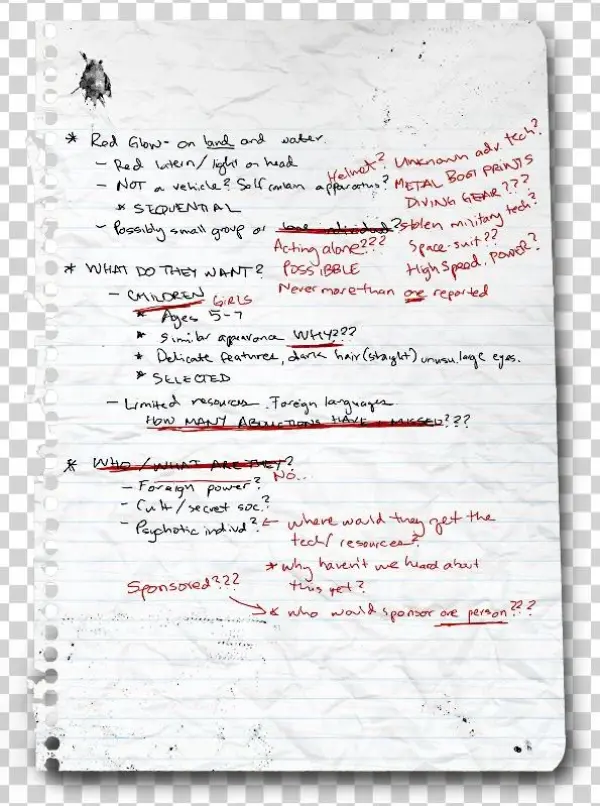 * Red Glow - on land and water.
- Red latern/light on head
Helmet?
Unknown adv tech?
- NOT a vehicle? Self contain apparatus?
METAL BOOT PRINTS
* SEQUENTIAL
DIVING GEAR???
- Possibly small group or lone individual?
Stolen military tech?
Acting alone???
Space-suit??
* WHAT DO THEY WANT?
POSSIBBLE
High Speed, Power?
Never more than one reported
- CHILDREN GIRLS
* Ages 5-7
* Similar appearance WHY???
* Delicate features, dark hair (staight) unusu. large eyes.
* SELECTED
- Limited resources. Foreign languages
HOW MANY ABDUCTIONS HAVE I MISSED???
* WHO/WHAT ARE THEY?
- Foreign power? NO...
- Cult/secret soc.?
- Psychotic individ? ← where would they get the
tech/resources?
* why haven't we heard about
this yet?
Sponsored???
* who would sponsor one person???